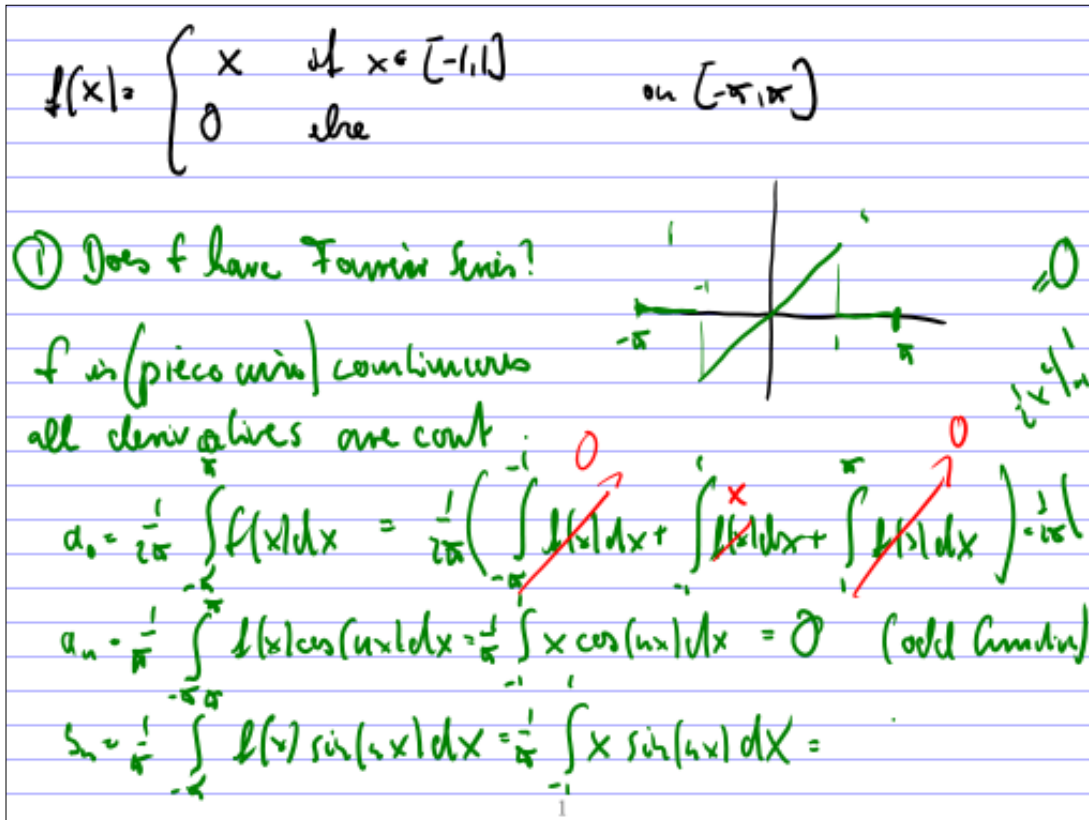 f(x) = { x if x ∈ [-1,1]
0 else
on [-π,π]
① Does f have Fourier Series?
-π -1 1 π
f is (piecewise) continuous
all derivatives are cont.
a₀ = 1/2π ∫_{-π}^{π} f(x)dx = 1/2π ( ∫_{-π}^{-1} f(x)dx + ∫_{-1}^{1} f(x)dx + ∫_{1}^{π} f(x)dx ) = 1/2π (
0 x 0
½x²|₋₁¹
=0
aₙ = 1/π ∫_{-π}^{π} f(x)cos(nx)dx = 1/π ∫_{-1}^{1} x cos(nx)dx = 0 (odd function)
bₙ = 1/π ∫_{-π}^{π} f(x) sin(nx)dx = 1/π ∫_{-1}^{1} x sin(nx)dx =
1